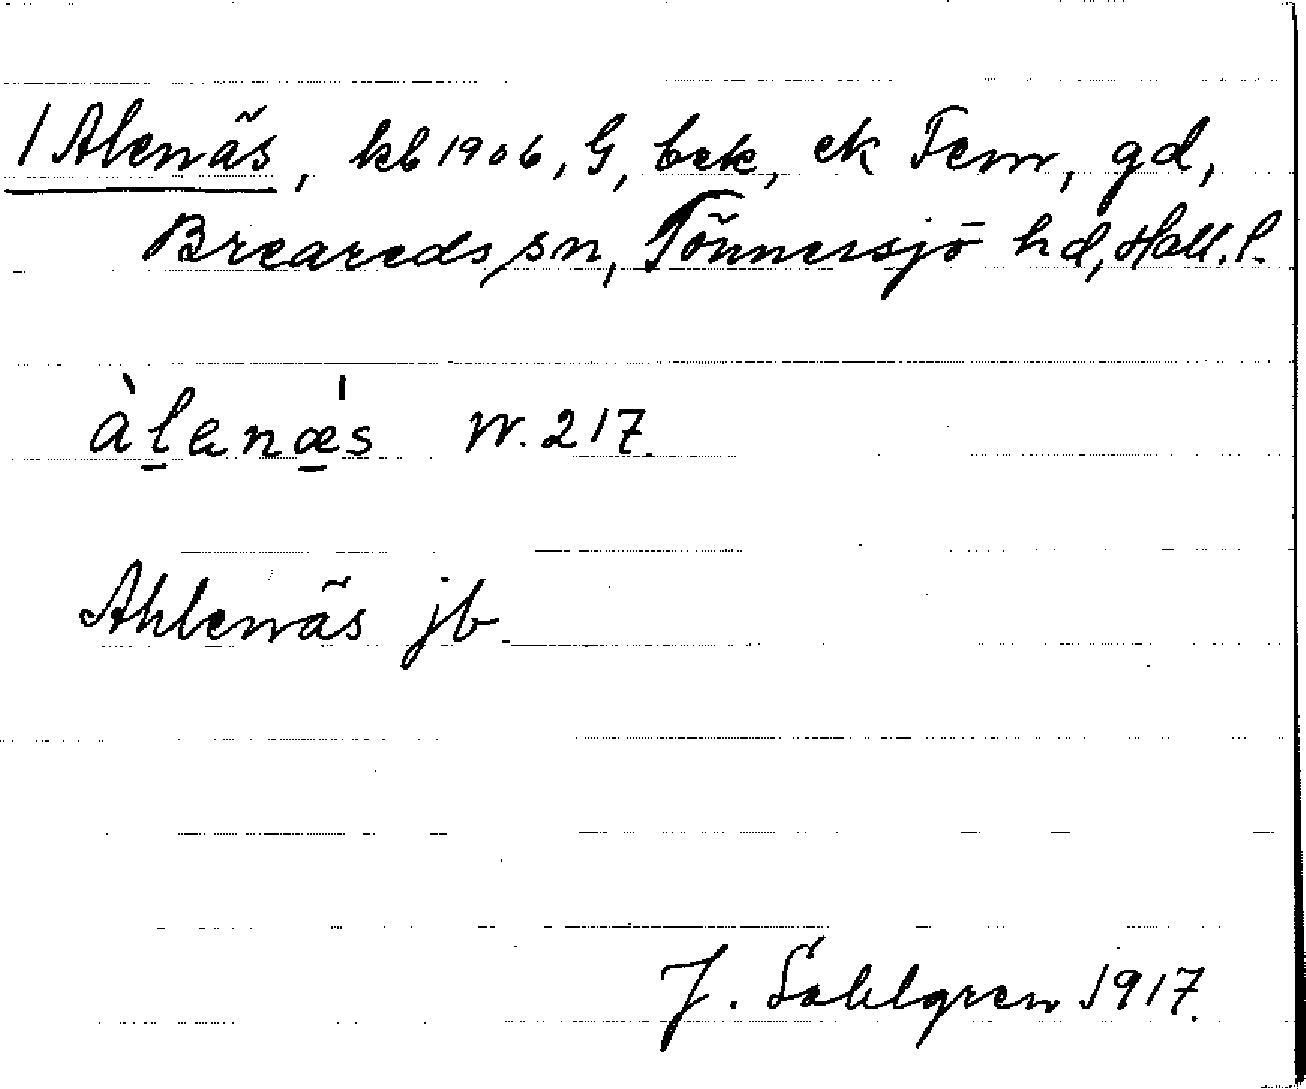 1 Alenäs, kb 1906, G, bek, ek Fem, gd,
Breareds sn, Tönnersjö hd, Hall. l.
àlenǽs W. 217.
Ahlenäs jb.
J. Sahlgren 1917.